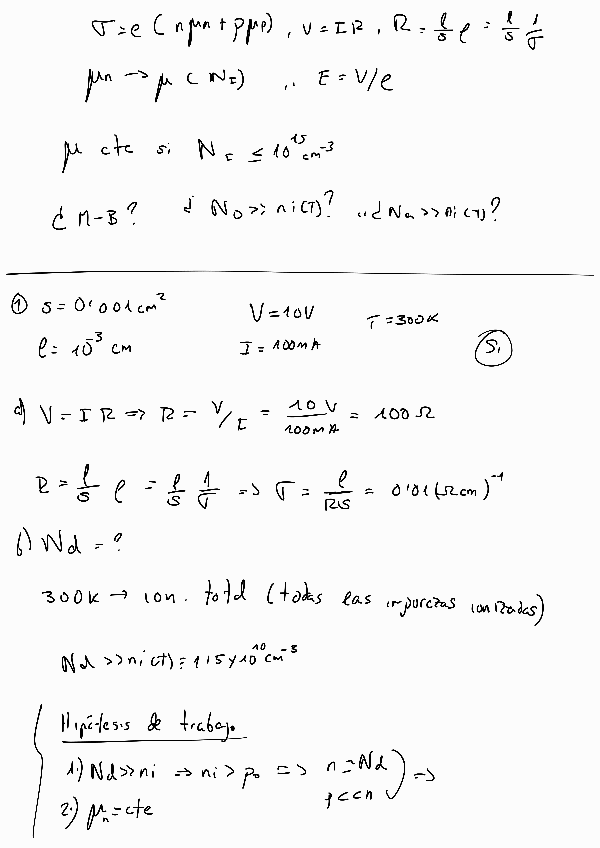 σ = e ( n μn + p μp) , V = I R , R = l/s ρ = l/s 1/σ
μn → μ ( N_I) ,, E = V/l
μ cte si N_I ≤ 10^15 cm^-3
¿ M-B? ¿ N_D >> ni(T)? ,, ¿ Na >> ni(T)?
① s = 0'001 cm^2 V = 10V T = 300K
l = 10^-3 cm I = 100mA Si
a) V = I R ⇒ R = V/I = 10 V / 100mA = 100 Ω
R = l/s ρ = l/s 1/σ ⇒ σ = l/RS = 0'01 (Ω cm)^-1
b) Nd = ?
300K → ion. total (todas las impurezas ionizadas)
Nd >> ni(T) = 1'5 x 10^10 cm^-3
Hipótesis de trabajo
1.) Nd >> ni ⇒ ni > p_o ⇒ n = Nd ⇒
p << n
2.) μn = cte